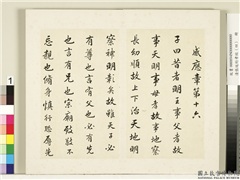 感應章第十六
子曰昔者明王事父孝故
事天明事母孝故事地察
長幼順故上下治天地明
察神明彰矣故雖天子必
有尊也言有父也必有先
也言有兄也宗廟致敬不
忘親也脩身慎行恐辱先